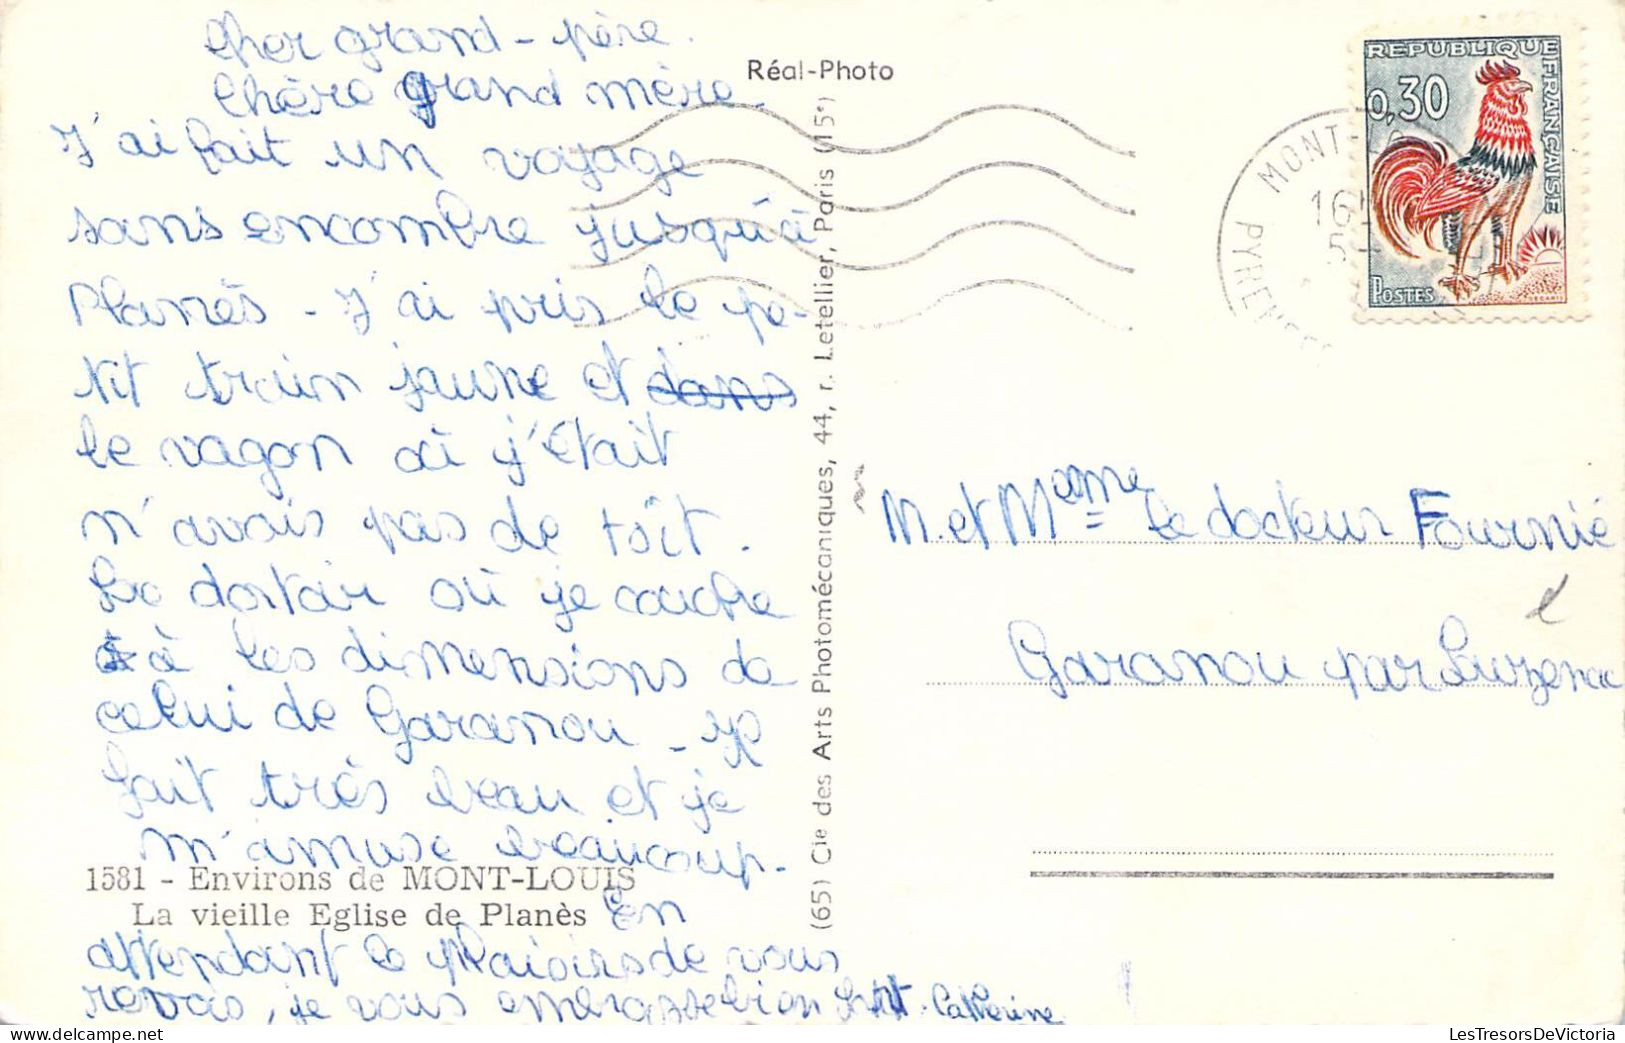 Cher grand-père.
Chère grand mère.
J'ai fait un voyage
sans encombre jusqu'à
Planès - J'ai pris le pe-
tit train jaune et dans
le vagon où j'était
n'avais pas de toît.
Le dortoir où je couche
à les dimensions de
celui de Garanou - Il
fait très beau et je
m'amuse beaucoup.
En
attendant le plaisirs de vous
revoir, je vous embrasse bien fort. Catherine
1581 - Environs de MONT-LOUIS
La vieille Eglise de Planès
Réal-Photo
(65) Cie des Arts Photomécaniques, 44, r. Letellier, Paris (15e)
REPUBLIQUE FRANÇAISE
0,30
POSTES
DECARIS
MONT-
16H
5
PYRENEES
M. et Mame Le docteur Fournié
Garanou par Luzenac
LesTresorsDeVictoria